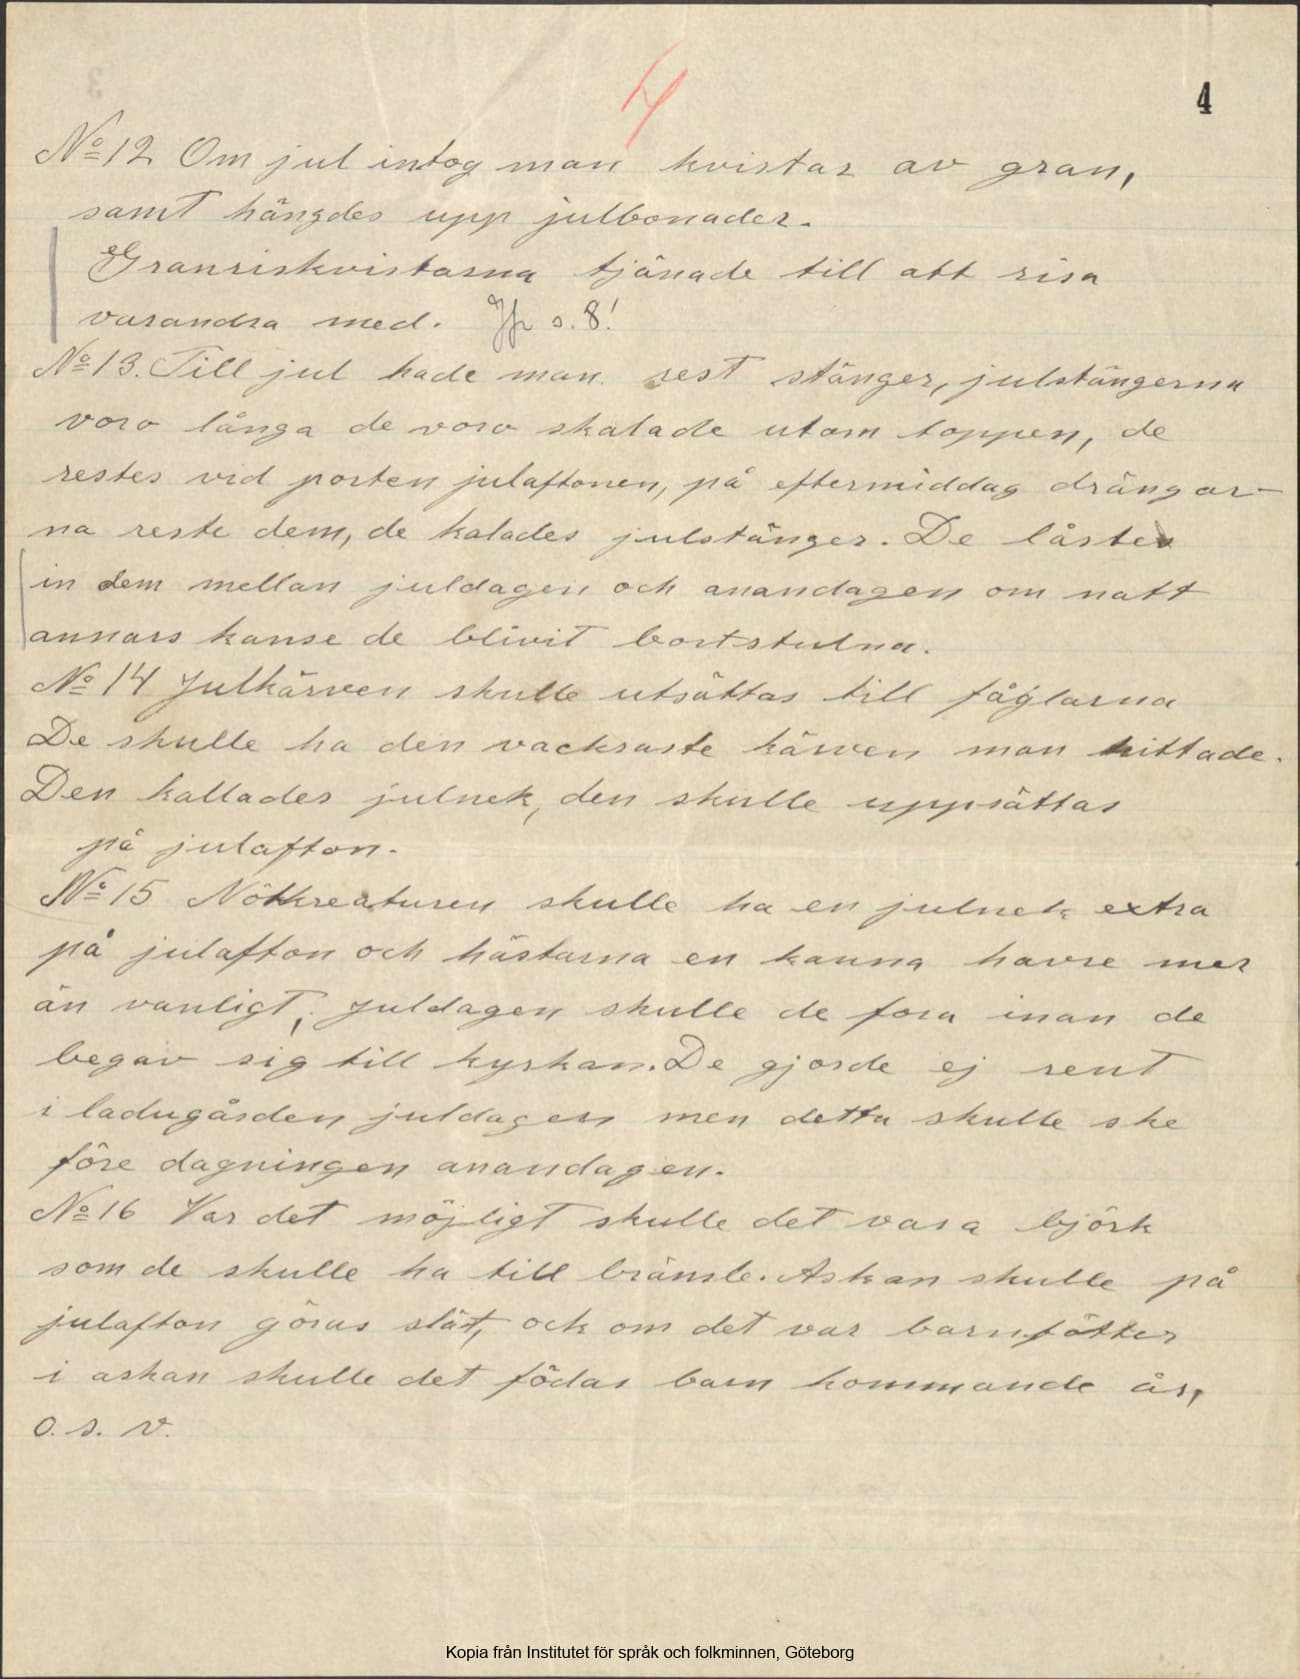 4
4
No 12 Om jul intog man kvistar av gran,
samt hängdes upp julbonader.
Granriskvistarna tjänade till att risa
varandra med. Jfr s. 8!
No 13. Till jul hade man rest stänger, julstängerna
voro långa de voro skalade utom toppen, de
restes vid porten julaftonen, på eftermiddag drängar-
na reste dem, de kalades julstänger. De låste
in dem mellan juldagen och anandagen om natt
annars kanse de blivit bortstulna.
No 14 Julkärven skulle utsättas till fåglarna
De skulle ha den vackraste kärven man hittade.
Den kallades julnek, den skulle uppsättas
på julafton.
No 15 Nötkreaturen skulle ha en julnek extra
på julafton och hästarna en kanna havre mer
än vanligt, Juldagen skulle de fora inan de
begav sig till kyrkan. De gjorde ej rent
i ladugården juldagen men detta skulle ske
före dagningen anandagen.
No 16 Var det möjligt skulle det vara björk
som de skulle ha till bränsle. Askan skulle på
julafton göras slät, och om det var barnfötter
i askan skulle det födas barn kommande år,
o. s. v.
Kopia från Institutet för språk och folkminnen, Göteborg